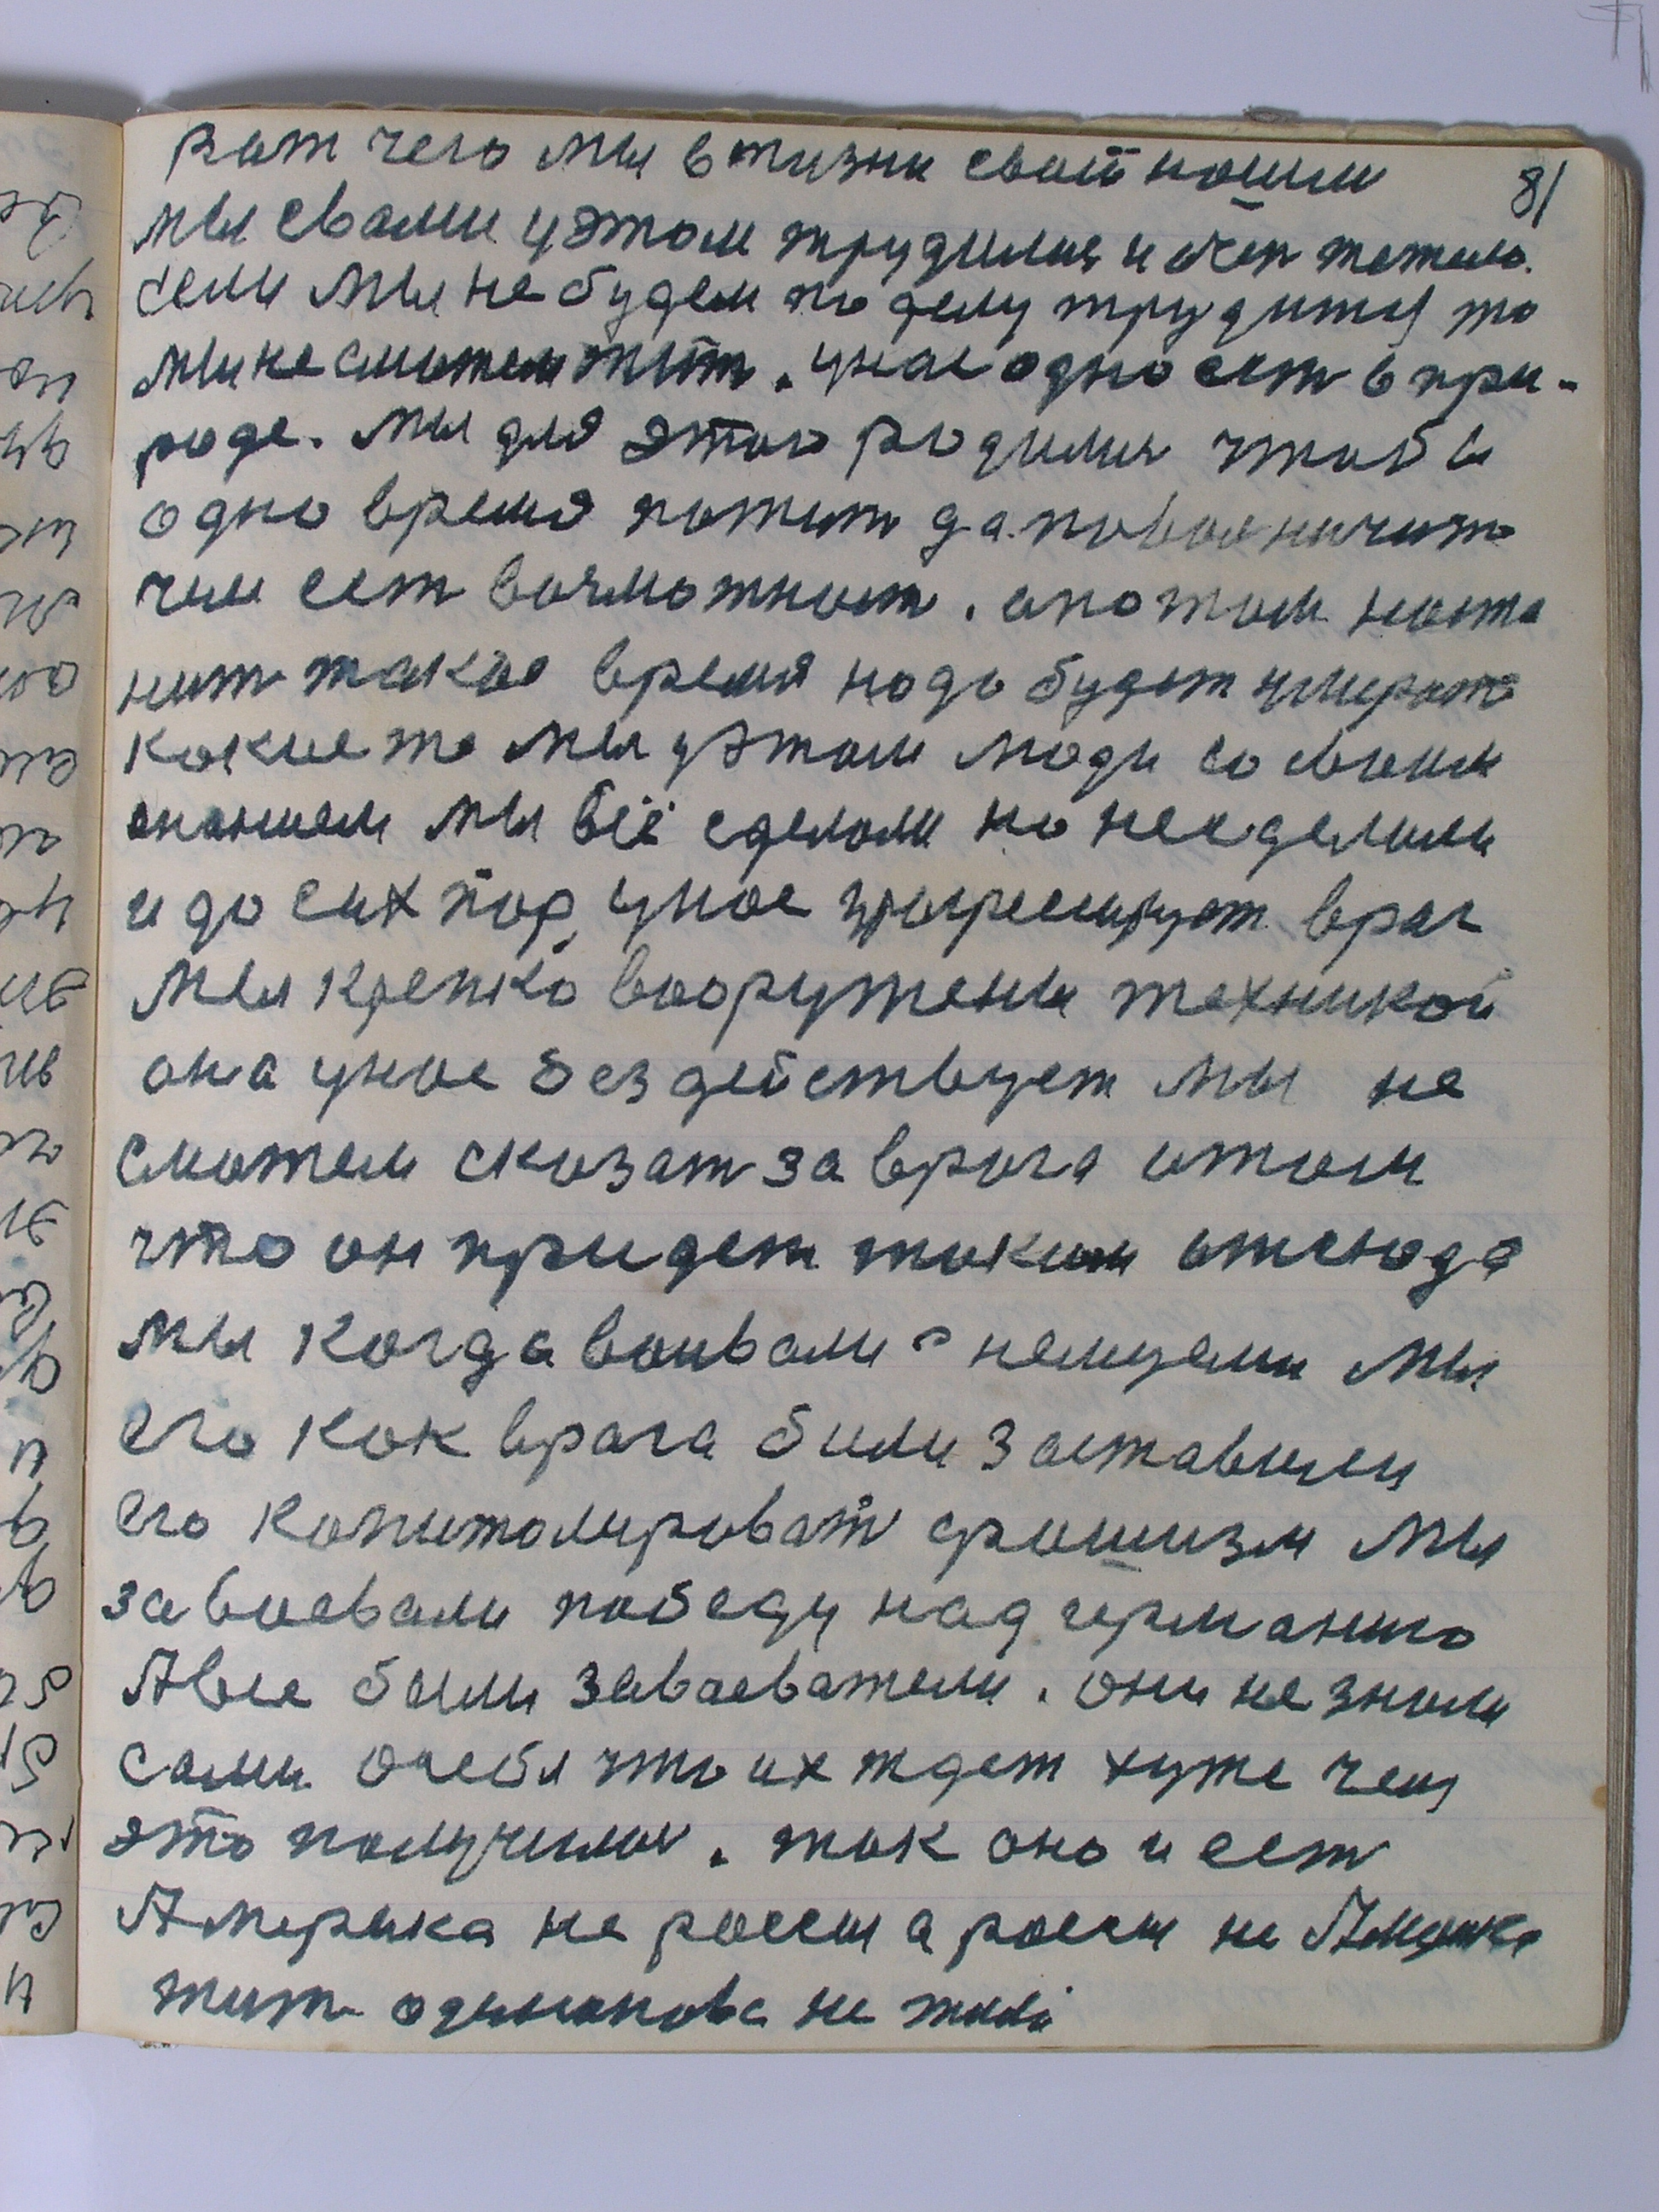 81
рат чего мы в жизни своей нашли
мы свами уэтом трудились и очен тежело.
если мы небудем по делу трудится то
мы несможем жит. унас одно ест в при-
роде. мы для этого родилис чтобы
одно время пожит да повоеничит
чем ест возможност. апотом наста
нит такое время надо будет умерат
какие то мы уэтом люди со своим
знанием мы всё сделали но несделали
и до сих пор унас прогресирует враг
мы крепко вооружены техникой
она унас бездействует мы не
сможем сказат за врага отом
что он придет таким отсюда
мы когда воивали с немцами мы
его как врага били заставили
его капитолироват фрашизм мы
завоевали победу над германию
А вы были завоеватели. они не знали
сами осебя что их ждет хуже чем
это получилос. так оно и ест
Америка не росси а росси не
жит одинакова не